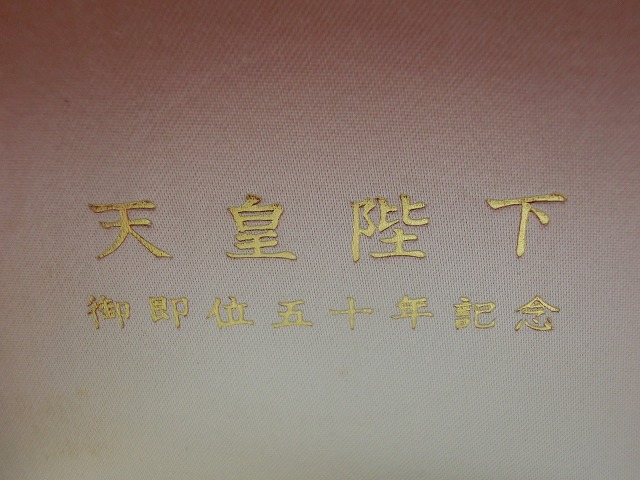 天皇陛下
御即位五十年記念